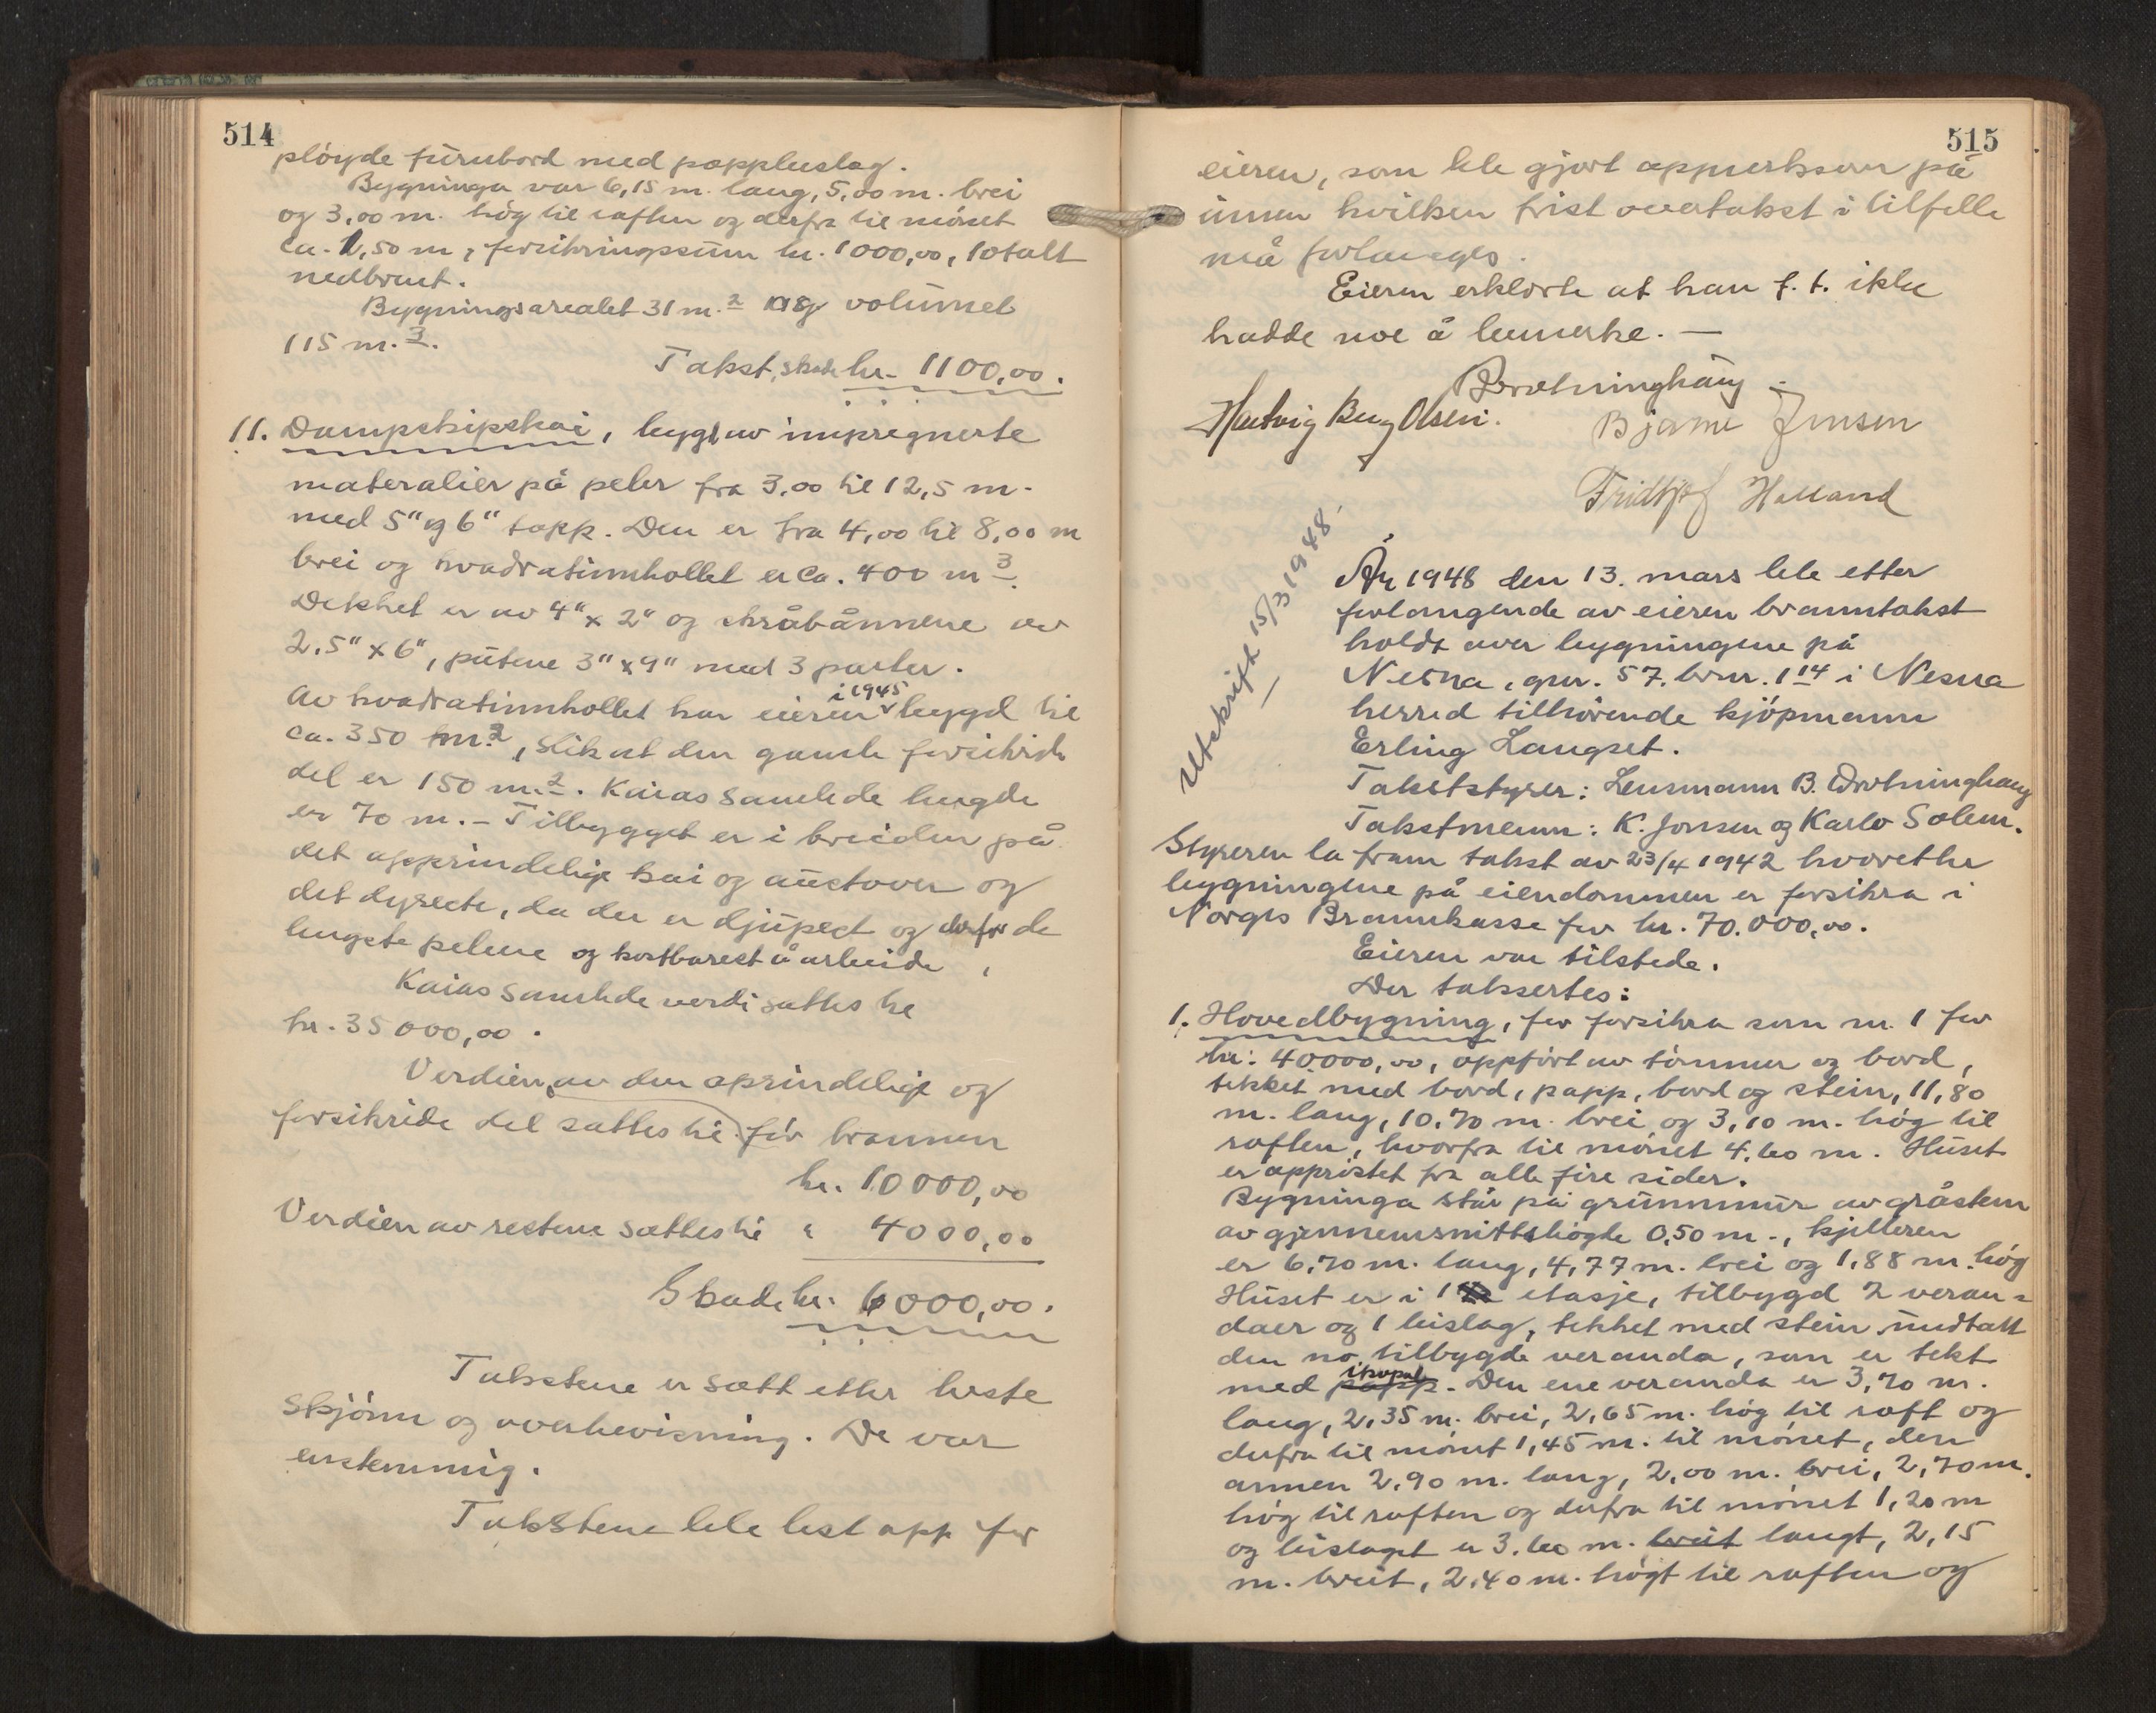 514
pløyde furubord med pappluslag.
Bygninga var 6,15 m. lang, 5,00 m. brei
og 3,00 m. høg til raften og derfra til mønet
ca. 1,50 m, forsikringssum kr. 1000,00, totalt
nedbrent.
Bygningsarealet 31 m.² og volumet
115 m.³.
Takst, skade kr. 1100,00.
11. Dampskipskai, bygd av impregnerte
materalier på peler fra 3,00 til 12,5 m.
med 5" og 6" topp. Den er fra 4,00 til 8,00 m
brei og kvadratinnhollet er ca. 400 m³.
Dekket er av 4" x 2" og skråbånnene av
2.5" x 6", putene 3" x 9" med 3 parter.
Av kvadratinnhollet har eieren i 1945 bygd til
ca. 350 m.², slik at den gamle forsikrede
del er 150 m.². Kaias samlede lengde
er 70 m. - Tilbygget er i breiden på
det opprindelige kai og austover og
det dyreste, da der er djupest og derfor de
lengste pelene og kostbarest å arbeide.
Kaias samlede verdi sattes til
kr. 35000,00.
Verdien av den oprindelige og
forsikride del sattes til før brannen
kr. 10000,00
Verdien av restene sattes til " 4000,00
Skade kr. 6000,00.
Takstene er satt etter beste
skjønn og overbevisning. De var
enstemmig.
Takstene ble lest opp for
515
eieren, som ble gjort oppmerksom på
innen hvilken frist overtakst i tilfelle
må forlanges.
Eieren erklærte at han f. t. ikke
hadde noe å bemerke. —
Drotninghaug.
Hartvig Berg Olsen. Bjarne Jensen
Fridtjof Helland
Utskrift 15/3 1948.
År 1948 den 13. mars ble etter
forlangende av eieren branntakst
holdt over bygningene på
Nesna, gnr. 57. brnr. 114 i Nesna
herred tilhørende kjøpmann
Erling Langset.
Takststyrer: Lensmann B. Drotninghaug
Takstmenn: K. Jonsen og Karlo Solem.
Styreren la fram takst av 23/4 1942 hvoretter
bygningene på eiendommen er forsikra i
Norges Brannkasse for kr. 70.000,00.
Eieren var tilstede.
Der takssertes:
1. Hovedbygning, før forsikra som nr. 1 for
kr: 40000,00, oppført av tømmer og bord,
tekket med bord, papp, bord og stein, 11,80
m. lang, 10,70 m. brei og 3,10 m. høg til
raften, hvorfra til mønet 4.60 m. Huset
er opprøstet fra alle fire sider.
Bygninga står på grunnmur av gråstein
av gjennemsnittshøgde 0,50 m., kjelleren
er 6,70 m. lang, 4,77 m. brei og 1,88 m. høg
Huset er i 1 etasje, tilbygd 2 veran=
daer og 1 bislag, tekket med stein undtatt
den no tilbygde veranda, som er tekt
med papp. Den ene veranda er 3,70 m.
lang, 2,35 m. brei, 2,65 m. høg til raft og
derfra til mønet 1,45 m. til mønet, den
annen 2,90 m. lang, 2,00 m. brei, 2,70 m.
høg til raften og derfra til mønet 1,20 m
og bislaget er 3.60 m. breit langt, 2,15
m. breit, 2,40 m. høgt til raften og